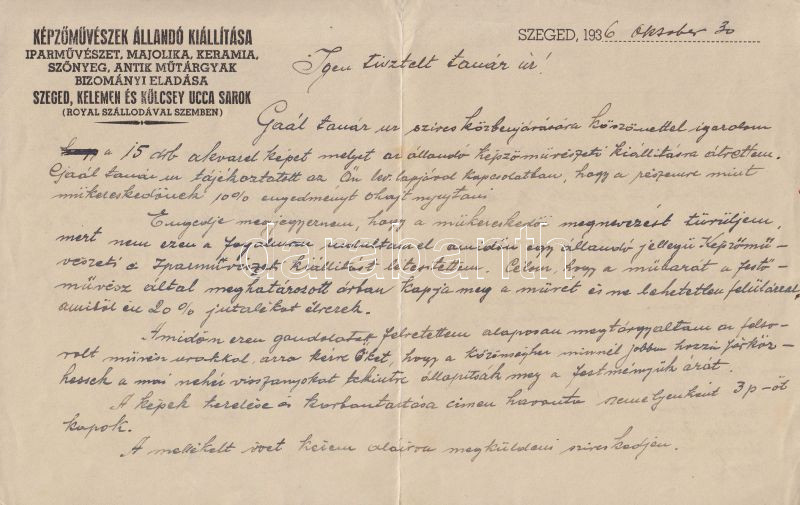 KÉPZŐMŰVÉSZEK ÁLLANDÓ KIÁLLÍTÁSA
IPARMŰVÉSZET, MAJOLIKA, KERAMIA,
SZŐNYEG, ANTIK MŰTÁRGYAK
BIZOMÁNYI ELADÁSA
SZEGED, KELEMEN ÉS KÖLCSEY UCCA SAROK
(ROYAL SZÁLLODÁVAL SZEMBEN)
SZEGED, 1936 Oktober 30
Igen tisztelt tanár úr!
Gaál tanár ur szives közbenjárására köszönettel igazolom
a 15 drb akvarel képet melyet az állandó képzőművészeti kiállitásra átvettem.
Gaál tanár ur tájékoztatott az Ön lev. lapjával kapcsolatban, hogy a részemre mint
műkereskedőnek 10% engedményt ohajt nyujtani
Engedje megjegyeznem, hogy a műkereskedő megnevezést türüljem,
mert nem ezen a fogalmon indultam el amidőn egy állandó jellegü Képzőmű-
vészeti és Iparművészet kiállitást létesitettem. Célom, hogy a műbarát a festő-
művész által meghatározott árban kapja meg a művet és ne lehetetlen felülárral,
amiből én 20% jutalékot élvezek.
Amidőn ezen gondolatot felvetettem alaposan megtárgyaltam az felso-
rolt művész urakkal, arra kérve Őket, hogy a közönséghez minnél jobban hozzá férkőz-
hessek a mai nehéz viszonyokat tekintve állapitsák meg a festményük árát.
A képek kezelése és karbantartása cimen havonta személyenként 3 p-őt
kapok.
A mellékelt ivet kérem aláirva megküldeni sziveskedjen.
darabanth